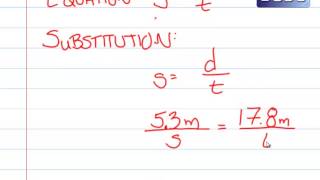 EQUATION: S t
SUBSTITUTION:
s = d / t
5.3m / s = 17.8m /